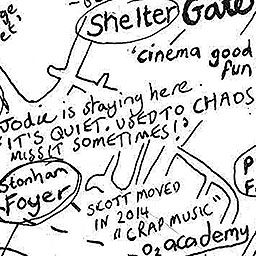 Shelter
Gate
'cinema good
fun
Jodie is staying here
'IT'S QUIET. USED TO CHAOS
MISS IT SOMETIMES!'
Stonham
Foyer
SCOTT MOVED
IN 2014
"CRAP MUSIC"
O2 academy